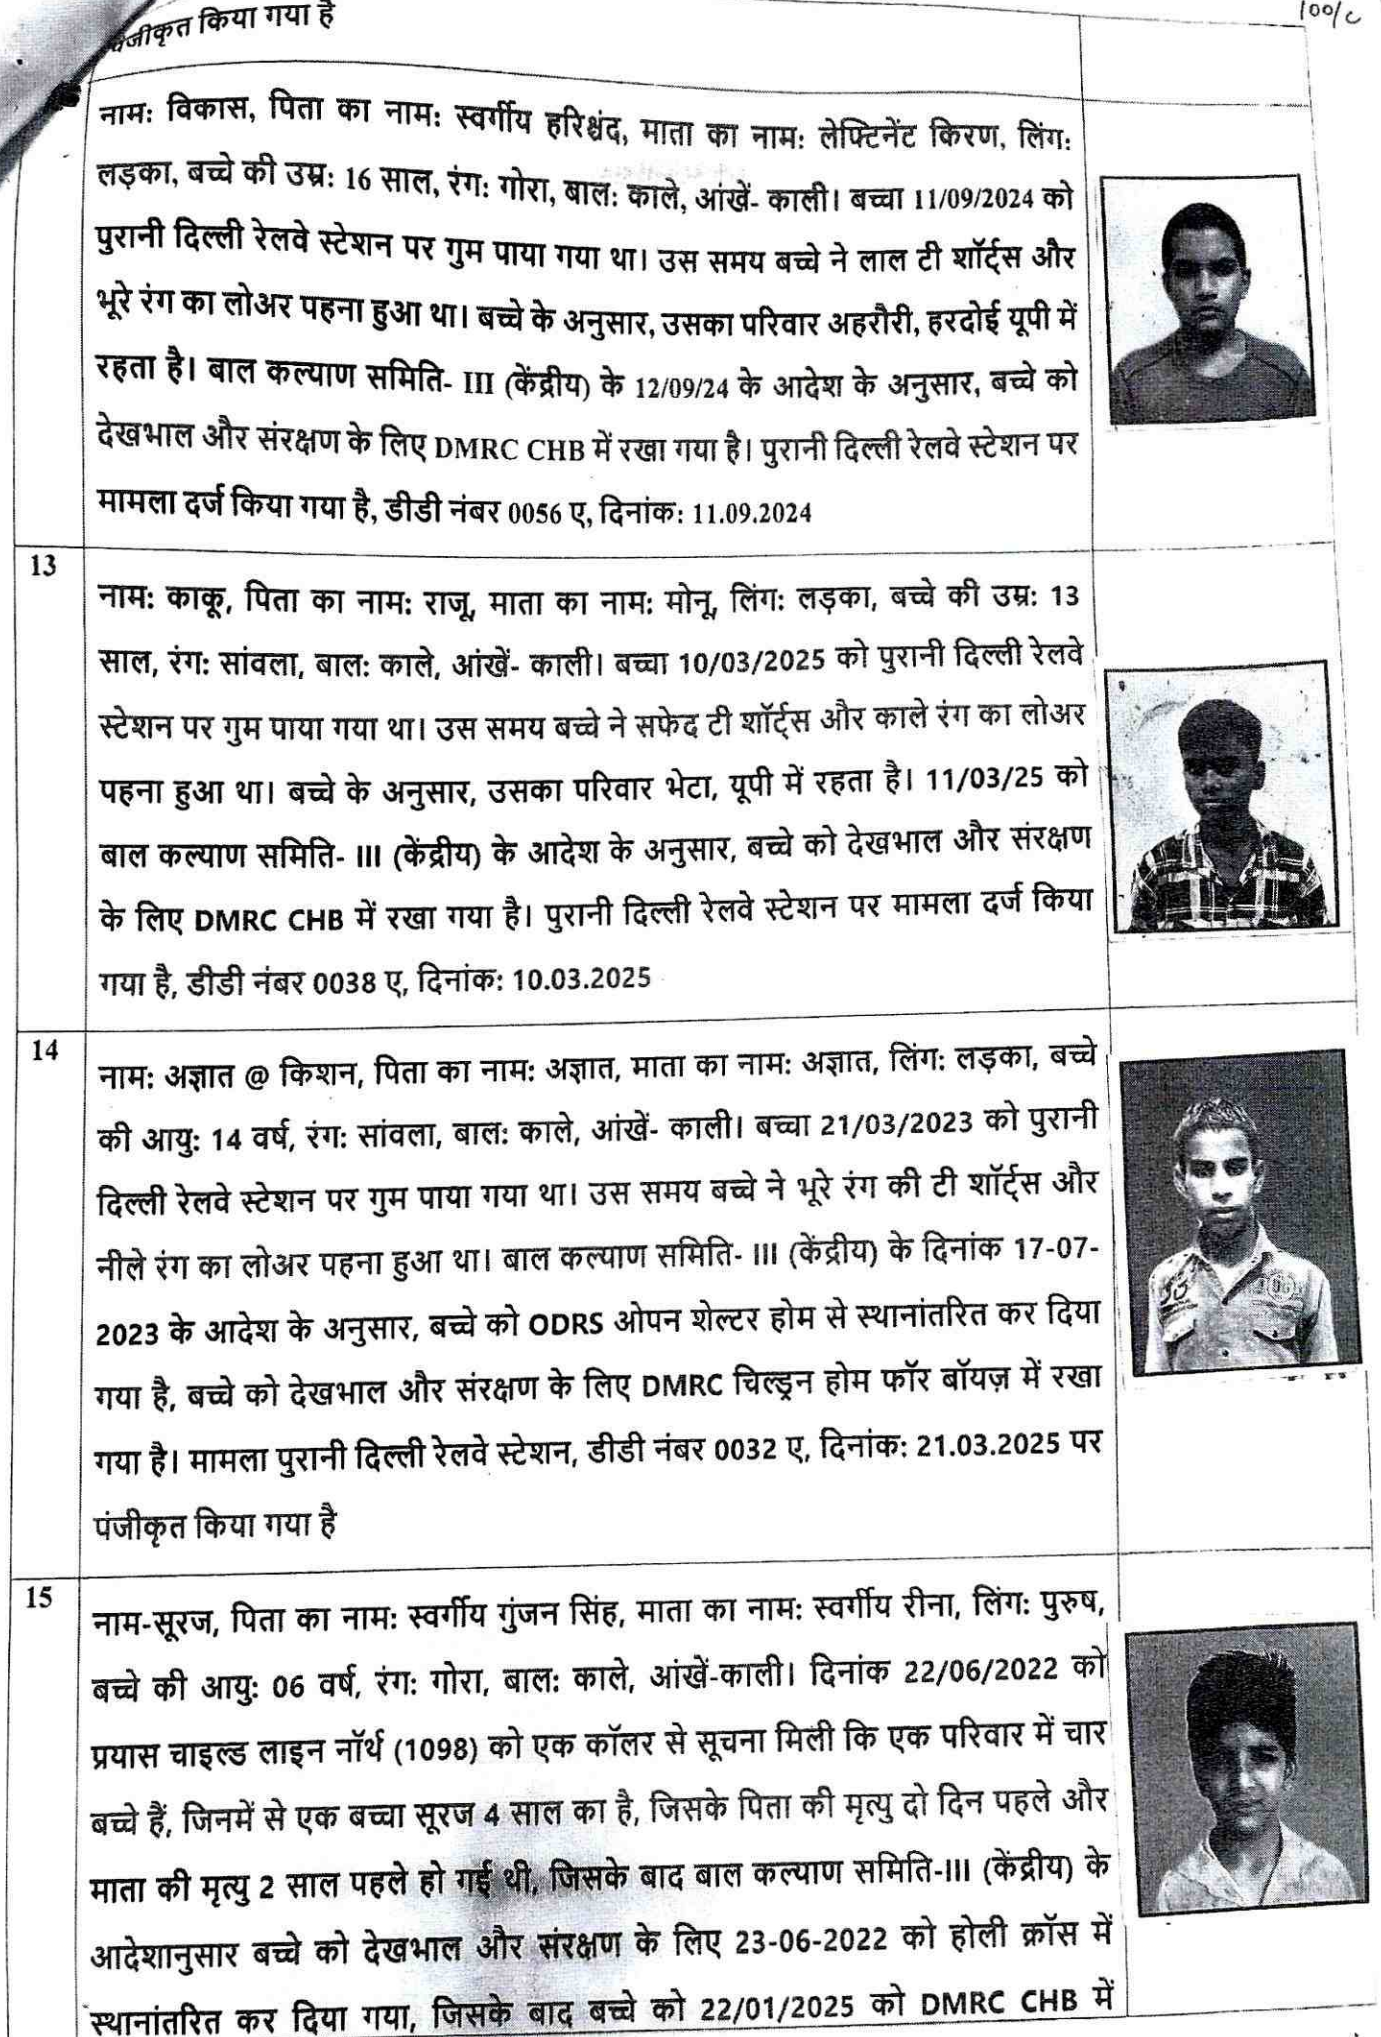 100/c
पंजीकृत किया गया है
नाम: विकास, पिता का नाम: स्वर्गीय हरिश्चंद, माता का नाम: लेफ्टिनेंट किरण, लिंग:
लड़का, बच्चे की उम्र: 16 साल, रंग: गोरा, बाल: काले, आंखें- काली। बच्चा 11/09/2024 को
पुरानी दिल्ली रेलवे स्टेशन पर गुम पाया गया था। उस समय बच्चे ने लाल टी शॉर्ट्स और
भूरे रंग का लोअर पहना हुआ था। बच्चे के अनुसार, उसका परिवार अहरौरी, हरदोई यूपी में
रहता है। बाल कल्याण समिति- III (केंद्रीय) के 12/09/24 के आदेश के अनुसार, बच्चे को
देखभाल और संरक्षण के लिए DMRC CHB में रखा गया है। पुरानी दिल्ली रेलवे स्टेशन पर
मामला दर्ज किया गया है, डीडी नंबर 0056 ए, दिनांक: 11.09.2024
13
नाम: काकू, पिता का नाम: राजू, माता का नाम: मोनू, लिंग: लड़का, बच्चे की उम्र: 13
साल, रंग: सांवला, बाल: काले, आंखें- काली। बच्चा 10/03/2025 को पुरानी दिल्ली रेलवे
स्टेशन पर गुम पाया गया था। उस समय बच्चे ने सफेद टी शॉर्ट्स और काले रंग का लोअर
पहना हुआ था। बच्चे के अनुसार, उसका परिवार भेटा, यूपी में रहता है। 11/03/25 को
बाल कल्याण समिति- III (केंद्रीय) के आदेश के अनुसार, बच्चे को देखभाल और संरक्षण
के लिए DMRC CHB में रखा गया है। पुरानी दिल्ली रेलवे स्टेशन पर मामला दर्ज किया
गया है, डीडी नंबर 0038 ए, दिनांक: 10.03.2025
14
नाम: अज्ञात @ किशन, पिता का नाम: अज्ञात, माता का नाम: अज्ञात, लिंग: लड़का, बच्चे
की आयु: 14 वर्ष, रंग: सांवला, बाल: काले, आंखें- काली। बच्चा 21/03/2023 को पुरानी
दिल्ली रेलवे स्टेशन पर गुम पाया गया था। उस समय बच्चे ने भूरे रंग की टी शॉर्ट्स और
नीले रंग का लोअर पहना हुआ था। बाल कल्याण समिति- III (केंद्रीय) के दिनांक 17-07-
2023 के आदेश के अनुसार, बच्चे को ODRS ओपन शेल्टर होम से स्थानांतरित कर दिया
गया है, बच्चे को देखभाल और संरक्षण के लिए DMRC चिल्ड्रन होम फॉर बॉयज़ में रखा
गया है। मामला पुरानी दिल्ली रेलवे स्टेशन, डीडी नंबर 0032 ए, दिनांक: 21.03.2025 पर
पंजीकृत किया गया है
15
नाम-सूरज, पिता का नाम: स्वर्गीय गुंजन सिंह, माता का नाम: स्वर्गीय रीना, लिंग: पुरुष,
बच्चे की आयु: 06 वर्ष, रंग: गोरा, बाल: काले, आंखें-काली। दिनांक 22/06/2022 को
प्रयास चाइल्ड लाइन नॉर्थ (1098) को एक कॉलर से सूचना मिली कि एक परिवार में चार
बच्चे हैं, जिनमें से एक बच्चा सूरज 4 साल का है, जिसके पिता की मृत्यु दो दिन पहले और
माता की मृत्यु 2 साल पहले हो गई थी, जिसके बाद बाल कल्याण समिति-III (केंद्रीय) के
आदेशानुसार बच्चे को देखभाल और संरक्षण के लिए 23-06-2022 को होली क्रॉस में
स्थानांतरित कर दिया गया, जिसके बाद बच्चे को 22/01/2025 को DMRC CHB में